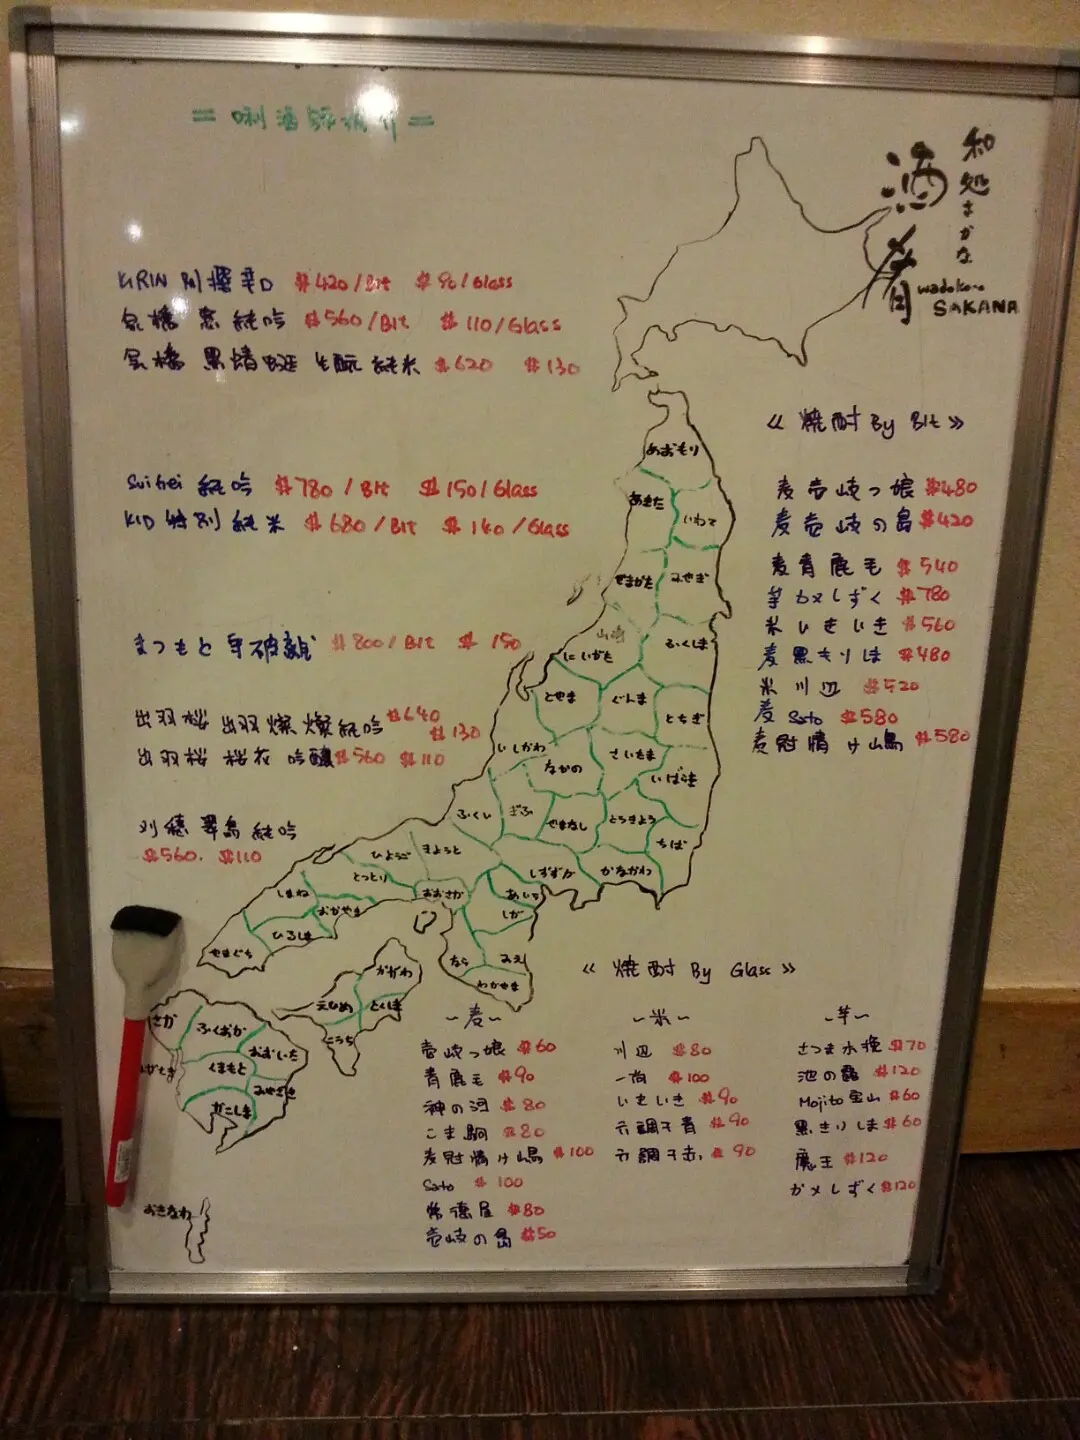 和処さかな
酒肴
wadokoro
SAKANA
KIRIN 別撰辛口 $420/Btl $90/Glass
泉橋 恵 純吟 $560/Btl $110/Glass
泉橋 黒蜻蜒 生酛 純米 $620 $130
Suigei 純吟 $780/Btl $150/Glass
KID 特別純米 $680/Btl $140/Glass
まつもと 守破離 $800/Btl $150
出羽桜 出羽燦燦純吟 $640 $130
出羽桜 桜花 吟醸 $560 $110
刈穂 翠島 純吟
$560. $110
《 焼酎 By Btl 》
麦 壱岐っ娘 $480
麦 壱岐の島 $420
麦 青鹿毛 $540
芋 カメしずく $780
米 いきいき $560
麦 黒きりしま $480
米 川辺 $520
麦 Sato $580
麦 冠情け山島 $580
あおもり
あきた
いわて
やまがた
みやぎ
山崎
にいがた
ふくしま
とやま
ぐんま
とちぎ
いしかわ
ながの
さいたま
いばらき
ふくい
ぎふ
やまなし
とうきょう
ちば
ひょうご
きょうと
しずずか
かながわ
とっとり
おおさか
あいち
しまね
おかやま
しが
ひろしま
やまぐち
なら
みえ
わかやま
かがわ
えひめ
とくしま
こうち
さか
ふくおか
おおいた
がさま
くまもと
みやざき
かごしま
おきなわ
《 焼酎 By Glass 》
~麦~
壱岐っ娘 $60
青鹿毛 $90
神の河 $80
こま駒 $80
麦冠情け山島 $100
Sato $100
常徳屋 $80
壱岐の島 $50
~米~
川辺 $80
一尚 $100
いきいき $90
六調子青 $90
六調子赤 $90
~芋~
さつま水挽 $70
池の露 $120
Mojito宝山 $60
黒きりしま $60
魔王 $120
カメしずく $120